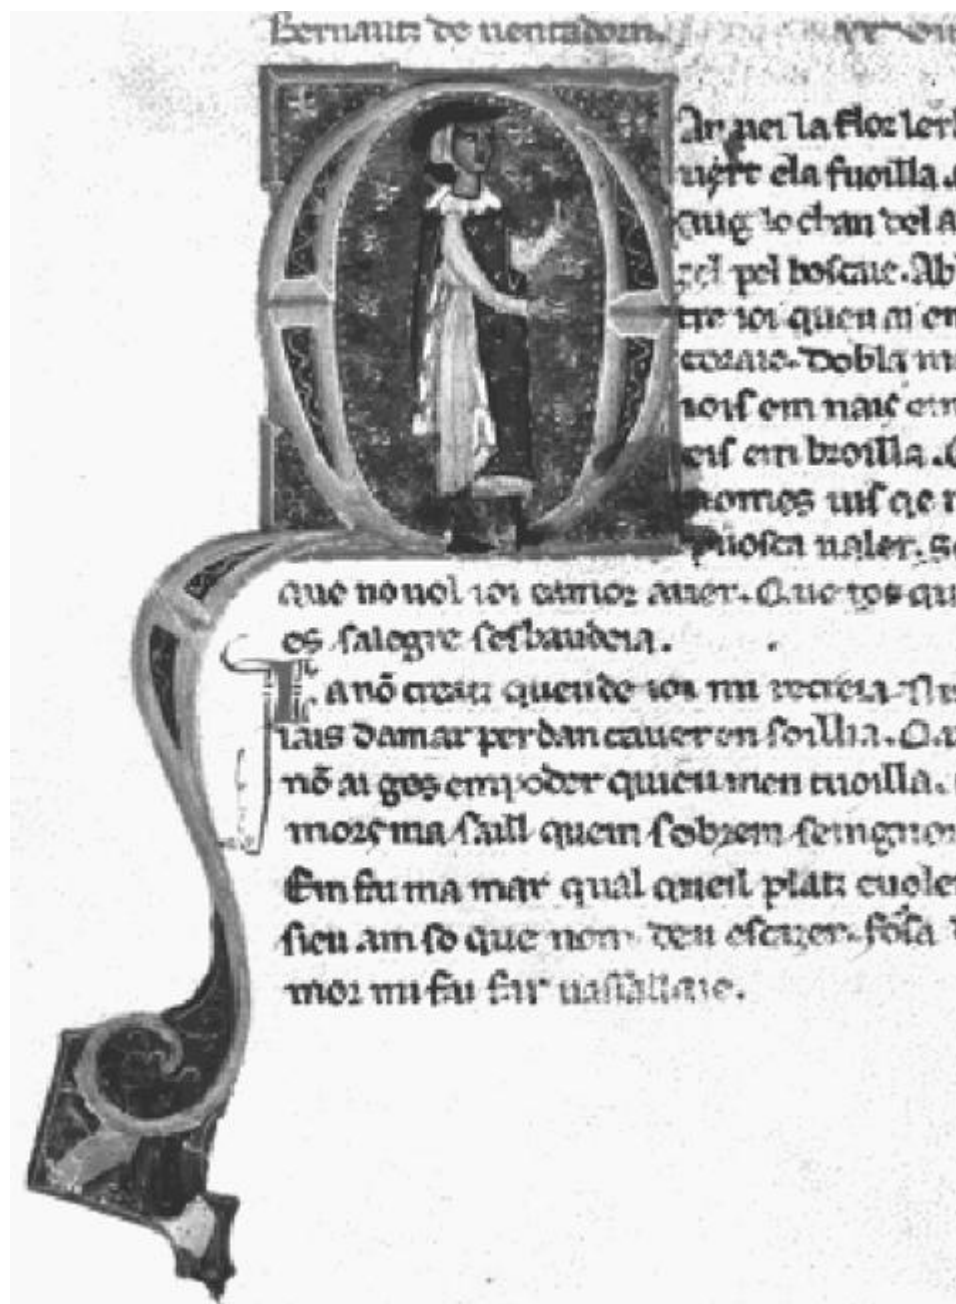 Bernautz de uentadorn.
Qan uei la flor lerb
uert ela fuoilla.
aug lo chan del a
gel pel boscaie. Ab
tre ioi queu ai en
coraie. Dobla m
iois em nais em
eis em broilla.
nomes uis qe
puosca ualer. Se
que no uol ioi camor auer. Que tos qu
es salegre sesbaudeia.
Ia nō creatz queu de ioi mi recreia. Ni
iais damar per dan cauer en soillia. Qa
nō ai ges em poder quieu men tuoilla.
mors ma saill quem sobrem seingnor
Em fai ma mar qual qeil platz euoler
sieu am so que nom deu escazer. fosa d
mor mi fai far uassallaie.